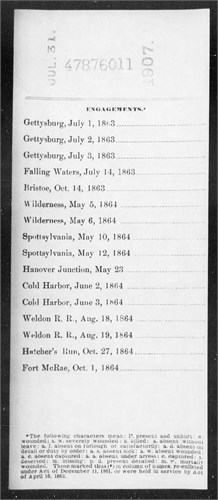 JUL. 31. 47876011 1907.
ENGAGEMENTS.*
Gettysburg, July 1, 1863
Gettysburg, July 2, 1863
Gettysburg, July 3, 1863
Falling Waters, July 14, 1863
Bristoe, Oct. 14, 1863
Wilderness, May 5, 1864
Wilderness, May 6, 1864
Spottsylvania, May 10, 1864
Spottsylvania, May 12, 1864
Hanover Junction, May 23
Cold Harbor, June 2, 1864
Cold Harbor, June 3, 1864
Weldon R. R., Aug. 18, 1864
Weldon R. R., Aug. 19, 1864
Hatcher's Run, Oct. 27, 1864
Fort McRae, Oct. 1, 1864
*The following characters mean: P. present and unhurt; w.
wounded; s. w. severely wounded; k. killed; a. absent without
leave; a. f. absent on furlough or satisfactorily; a. d. absent on
detail or duty by order; a. s. absent sick; a. w. absent wounded;
a. c. absent captured; a. a. absent under arrest; c. captured; d.
deserted; m. missing; p. d. present detailed; m. w. mortally
wounded. Those marked thus (*) in column of names, re-enlisted
under Act of December 11, 1861, or were held to service by Act
of April 16, 1862.